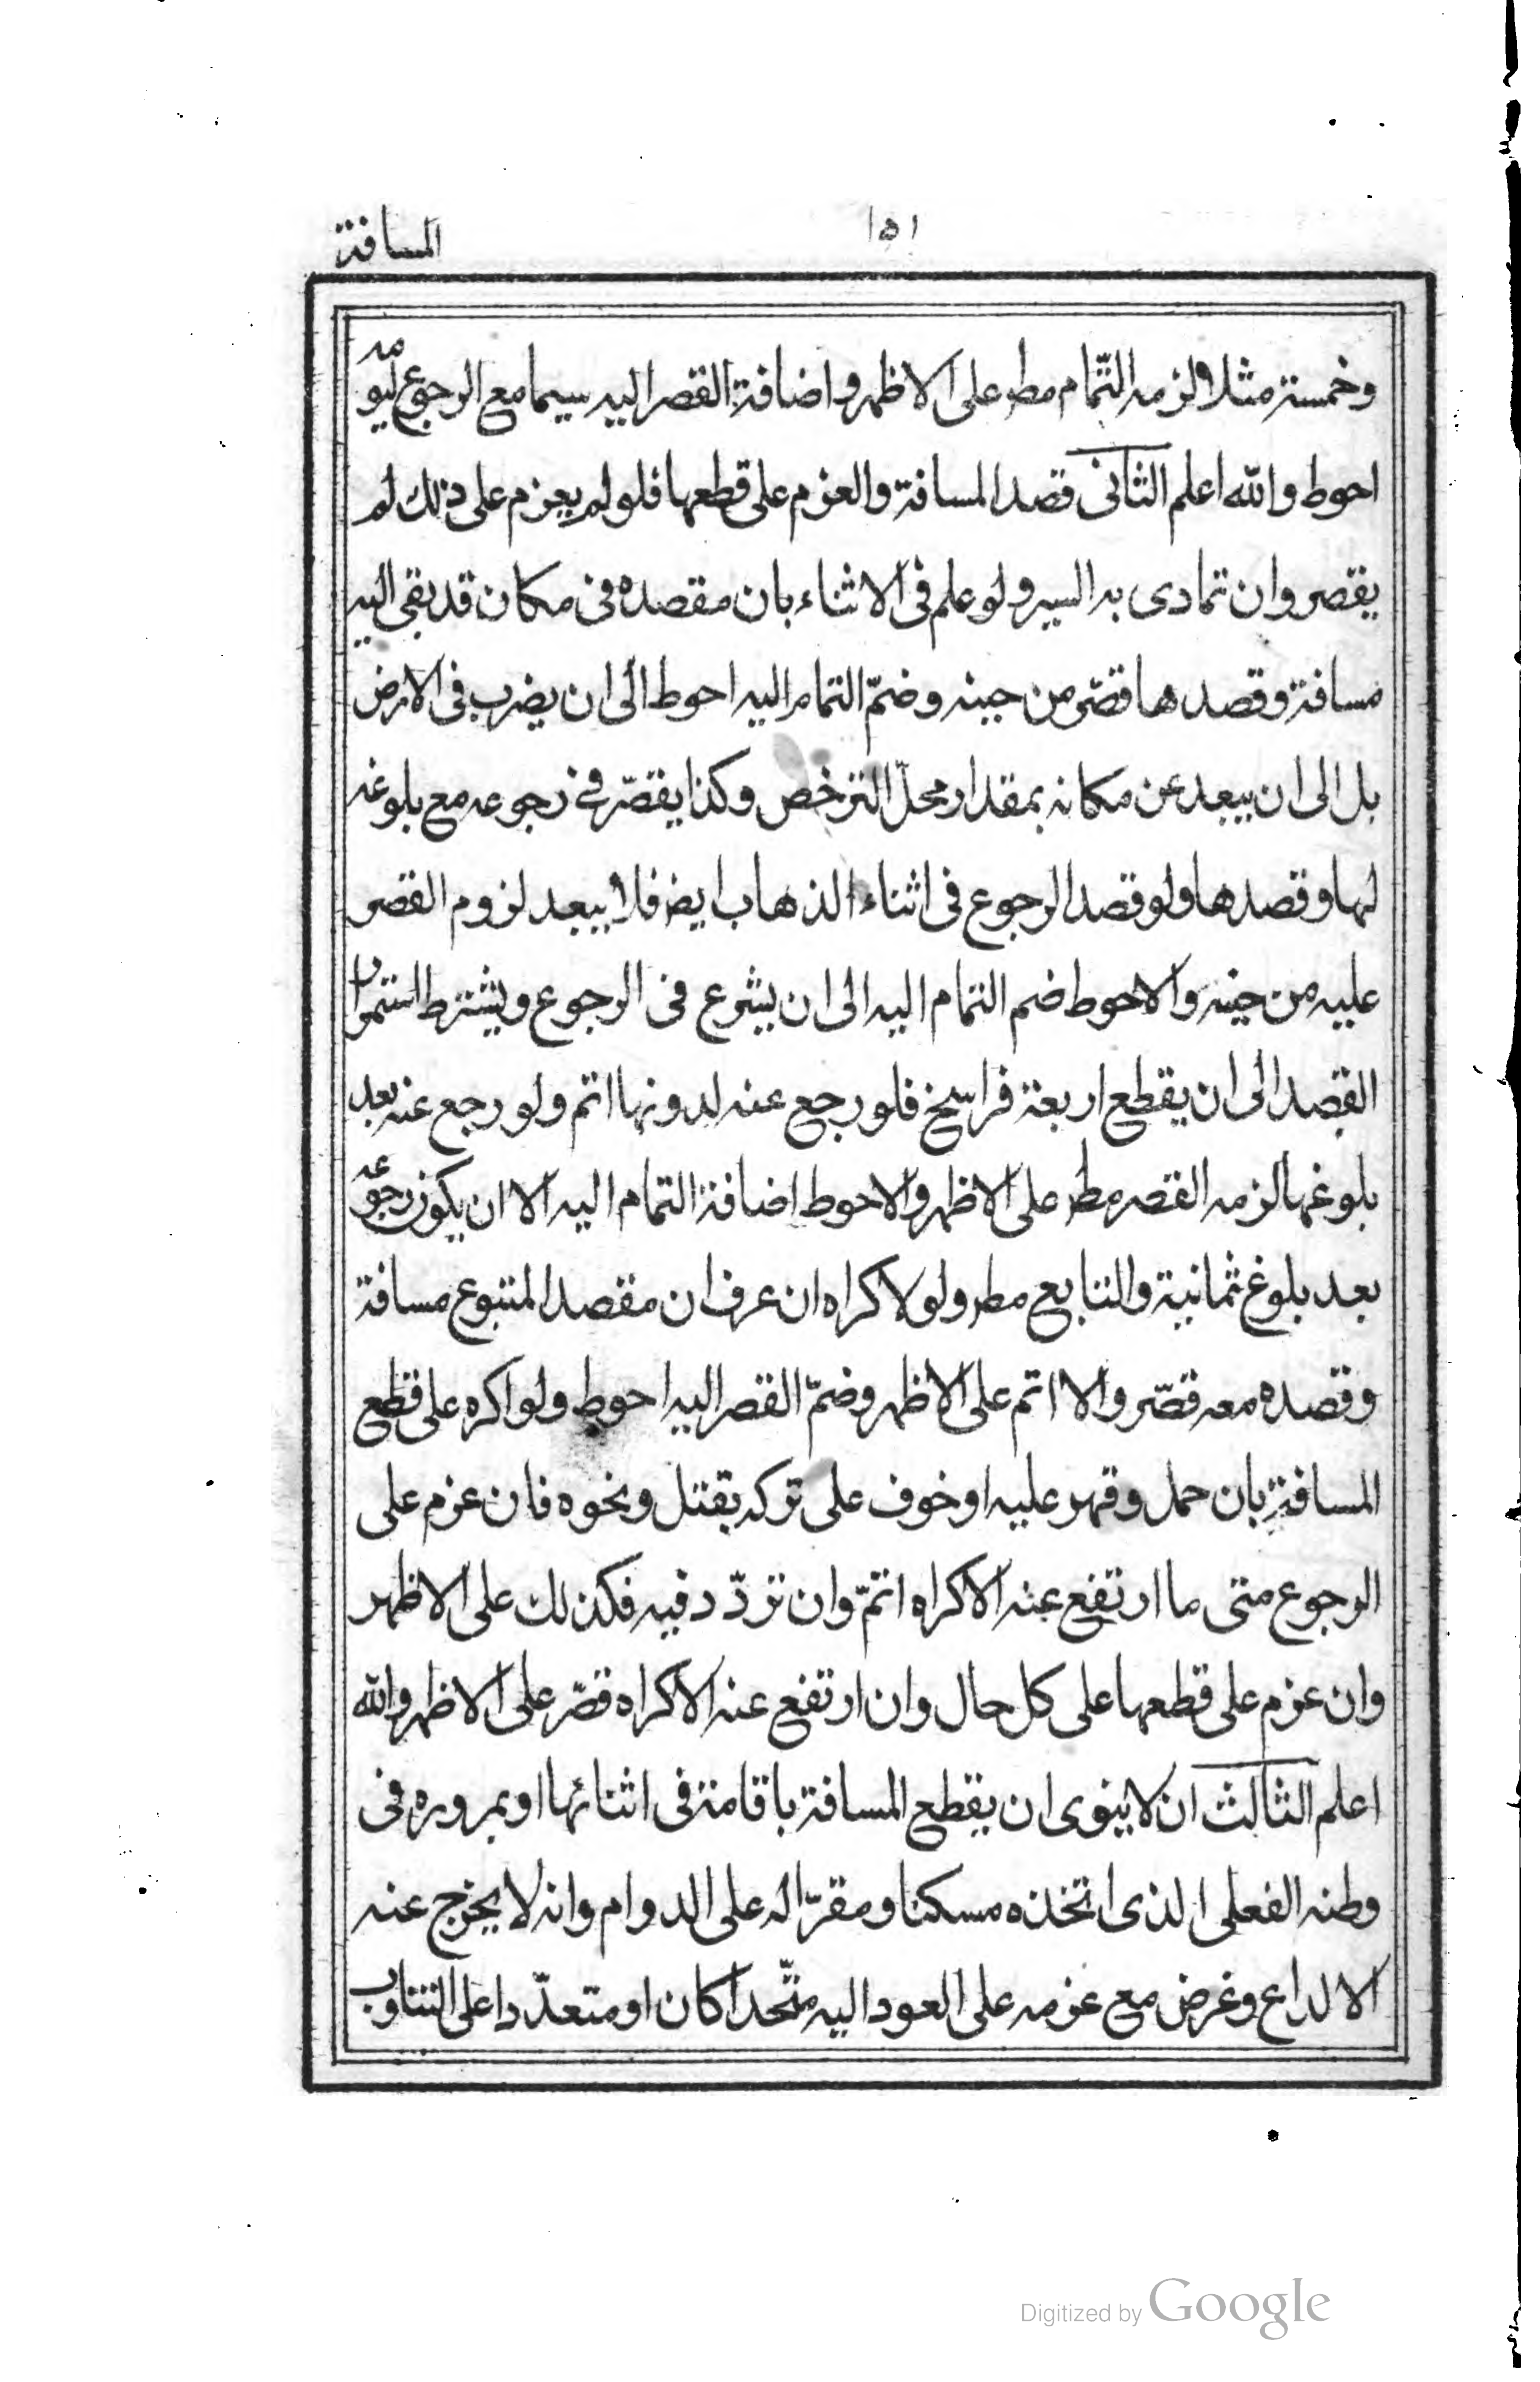 ١٥١
المسافة
وخمسة مثلا لزمه التّمام مط على الاظهر و اضافة القصر اليه سيما مع الرجوع ليومه
احوط والله اعلم الثانى قصد المسافة والعزم على قطعها فلو لم يعزم على ذلك لم
يقصر وان تمادى به السير ولو علم فى الاثناء بان مقصده فى مكان قد بقى اليه
مسافة وقصدها قصّر من حينه وضمّ التمام اليه احوط الى ان يضرب فى الارض
بل الى ان يبعد عن مكانه بمقدار محلّ الترخص وكذا يقصّر فى رجوعه مع بلوغه
لها وقصدها ولو قصد الرجوع فى اثناء الذهاب ايض فلا يبعد لزوم القصر
عليه من حينه والاحوط ضم التمام اليه الى ان يشرع فى الرجوع ويشترط استمرار
القصد الى ان يقطع اربعة فراسخ فلو رجع عنه لدونها اتم ولو رجع عنه بعد
بلوغها لزمه القصر مط على الاظهر والاحوط اضافة التمام اليه الا ان يكون رجوعه
بعد بلوغ ثمانية والتابع مط ولو لاكراه ان عرف ان مقصد المتبوع مسافة
وقصده معه قصّر والا اتم على الاظهر وضمّ القصر اليه احوط ولو اكره على قطع
المسافة بان حمل وقهر عليه او خوف على تركه بقتل ونحوه فان عزم على
الرجوع متى ما ارتفع عنه الاكراه اتمّ وان تردّد فيه فكذلك على الاظهر
وان عزم على قطعها على كل حال وان ارتفع عنه الاكراه قصّر على الاظهر والله
اعلم الثالث ان لا ينوى ان يقطع المسافة باقامة فى اثنائها او بمروره فى
وطنه الفعلى الذى اتخذه مسكنا ومقرّا له على الدوام وانه لا يخرج عنه
الا لداع وغرض مع عزمه على العود اليه متّحدا كان او متعدّدا على التناوب
Digitized by Google